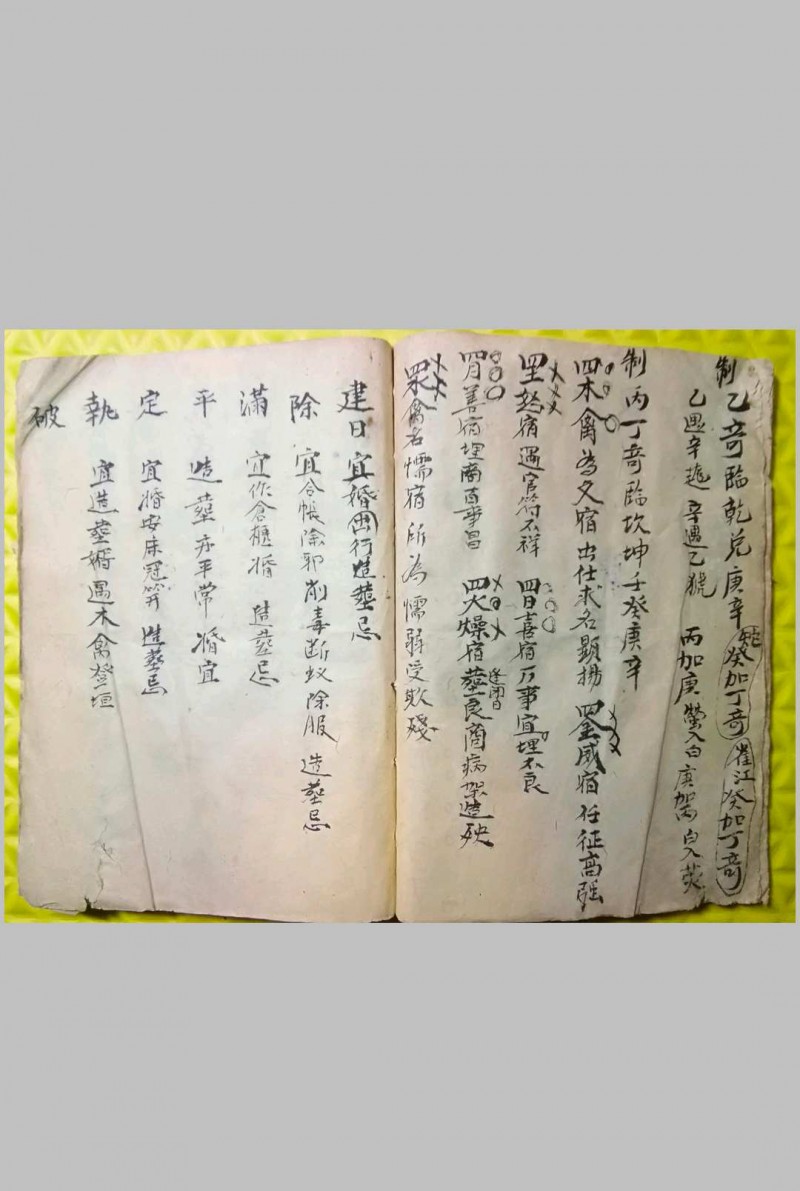 制乙奇臨乾兌庚辛 癸加丁奇 雀江癸加丁奇
乙遇辛 辛遇乙 丙加庚熒入白 庚加丙白入熒
制丙丁奇臨坎坤壬癸庚辛
四木禽為文宿出仕求名顯揚 四金威宿任征高强
四土愁宿遇官符不祥 四日喜宿万事宜埋不良
四月善宿埋商百事昌 四火燥宿塟良商病架造殃
逢闭日
四水禽名懦宿所為懦弱受欺殘
建日 宜婚出行造塟忌
除 宜合帳除邪削毒断蚁除服 造塟忌
滿 宜作倉櫃婚 造塟忌
平 造塟亦平常 婚宜
定 宜婚安床冠笄 造塟忌
執 宜造塟婚遇木禽登垣
破